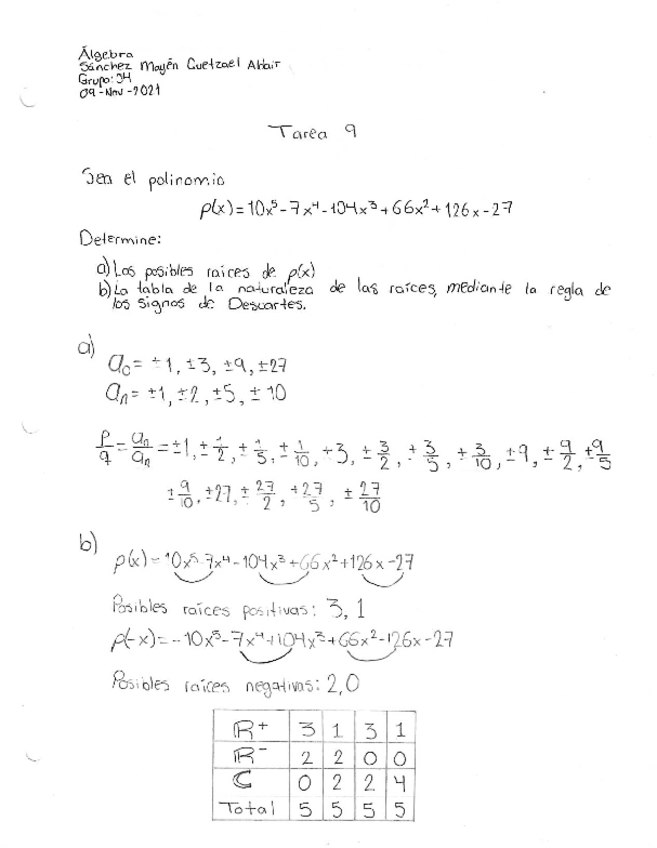 Álgebra
Sánchez Mayén Cuetzael Aldair
Grupo: 34
09-Nov-2021
Tarea 9
Sea el polinomio
p(x)=10x⁵-7x⁴-104x³+66x²+126x-27
Determine:
a) Los posibles raíces de p(x)
b) La tabla de la naturaleza de las raíces, mediante la regla de
los signos de Descartes.
a)
a₀= ±1, ±3, ±9, ±27
aₙ= ±1, ±2, ±5, ±10
p/q = aₙ/aₙ = ±1, ±1/2, ±1/5, ±1/10, ±3, ±3/2, ±3/5, ±3/10, ±9, ±9/2, ±9/5
±9/10, ±27, ±27/2, ±27/5, ±27/10
b)
p(x)=10x⁵-7x⁴-104x³+66x²+126x-27
Posibles raíces positivas: 3, 1
p(-x)=-10x⁵-7x⁴+104x³+66x²-126x-27
Posibles raíces negativas: 2,0
ℝ⁺ 3 1 3 1
ℝ⁻ 2 2 0 0
ℂ 0 2 2 4
Total 5 5 5 5